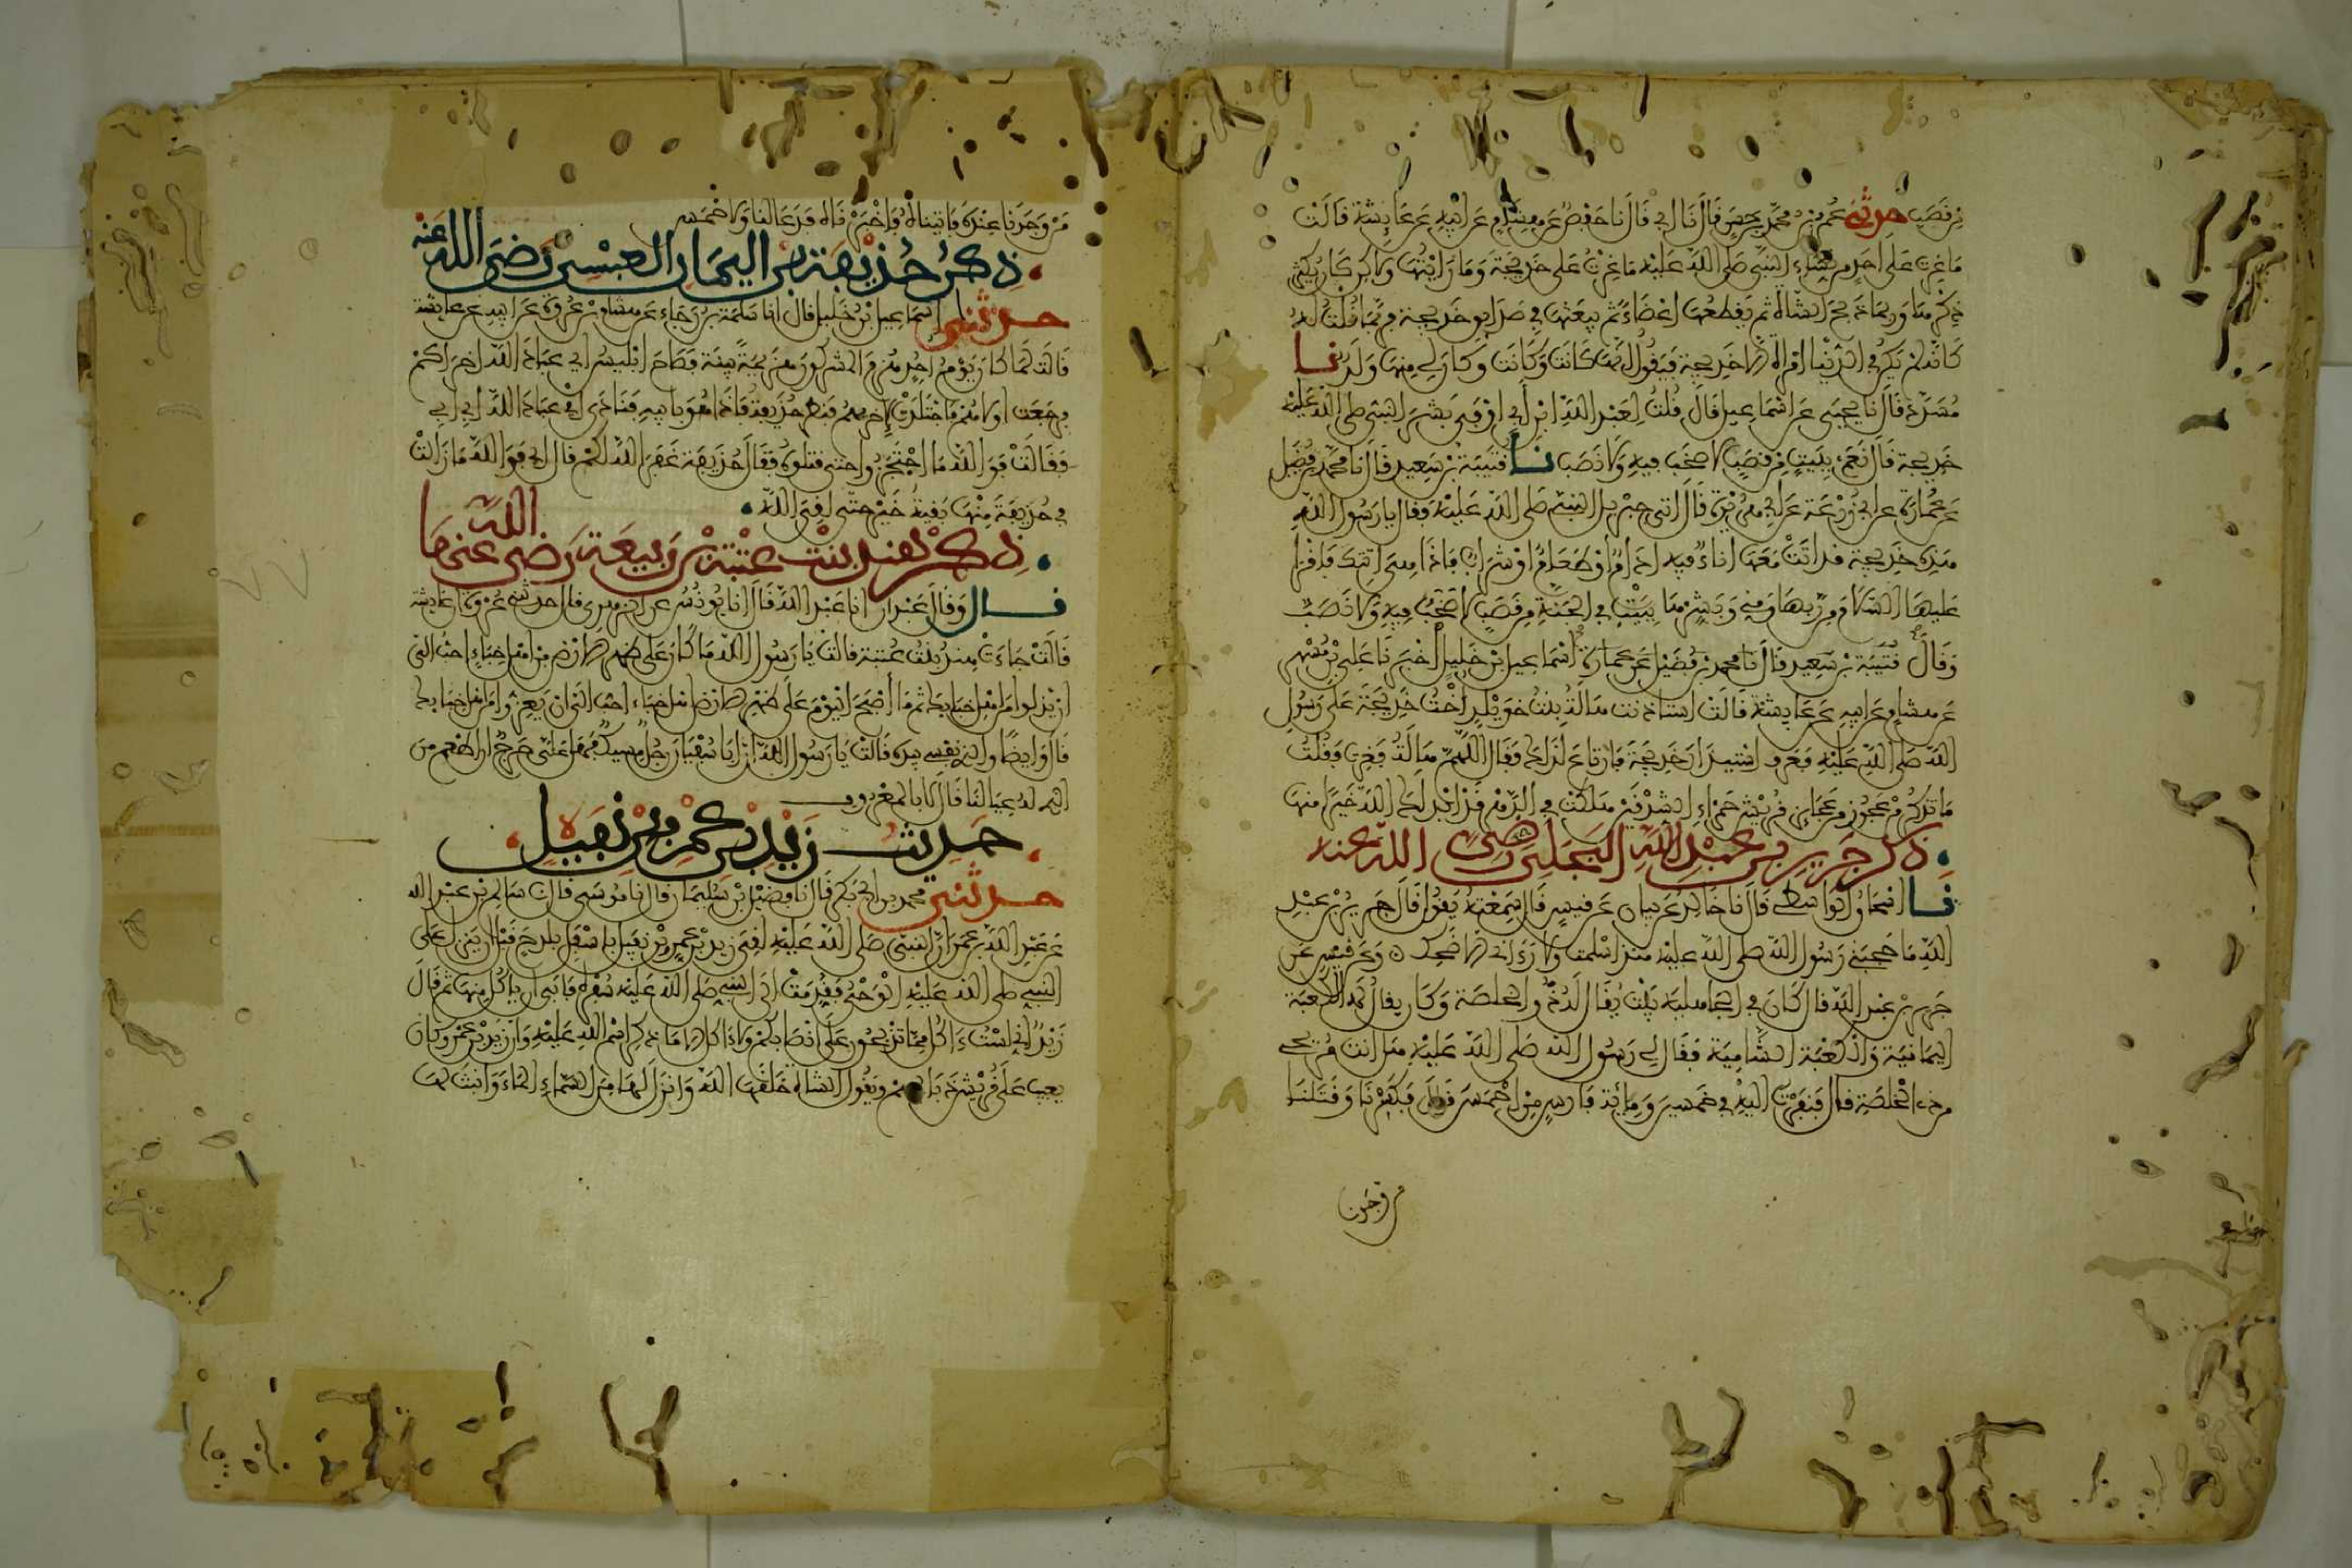 من قصب حدثني عمر بن محمد بن حسن قال نا أبي قال نا حفص عن هشام عن أبيه عن عائشة قالت
ما غرت على أحد من نساء النبي صلى الله عليه ما غرت على خديجة وما رأيتها ولاكن كان يكثر
ذكرها وربما ذبح الشاة ثم يقطعها أعضاء ثم يبعثها في صدايق خديجة فربما قلت له
كأنه لم تكن في الدنيا امراة الا خديجة فيقول إنها كانت وكانت وكان لي منها ولد نا
مسدد قال نا يحيى عن اسماعيل قال قلت لعبد الله ابن أبي أوفى بشر النبي صلى الله عليه
خديجة قال نعم ببيت من قصب لا صخب فيه ولا نصب نا قتيبة بن سعيد قال نا محمد بن فضيل
عن عمارة عن أبي زرعة عن أبي هريرة قال أتى جبريل النبي صلى الله عليه فقال يا رسول الله
هذه خديجة قد أتت معها اناء فيه ادام أو طعام أو شراب فاذا هي أتتك فاقرأ
عليها السلام من ربها ومني وبشرها ببيت في الجنة من قصب لا صخب فيه ولا نصب
وقال قتيبة بن سعيد قال نا محمد بن فضيل عن عمارة اسماعيل بن خليل أخبرنا علي بن مسهر
عن هشام عن أبيه عن عايشة قالت استاذنت هالة بنت خويلد أخت خديجة على رسول
الله صلى الله عليه فعرف استيذان خديجة فارتاع لذلك فقال اللهم هالة فغرت فقلت
ما تذكر من عجوز من عجائز قريش حمراء الشدقين هلكت في الدهر قد ابدلك الله خيرا منها
ذكر جرير بن عبد الله البجلي رضي الله عنه
نا اسحاق الواسطي قال نا خالد عن بيان عن قيس قال سمعته يقول قال جرير بن عبد
الله ما حجبني رسول الله صلى الله عليه منذ أسلمت ولا رءاني الا ضحك وعن قيس عن
جرير بن عبد الله قال كان في الجاهلية بيت يقال له ذو الخلصة وكان يقال له الكعبة
اليمانية والكعبة الشامية فقال لي رسول الله صلى الله عليه هل أنت مريحي
من ذي الخلصة قال فنفرت اليه في خمسين ومائة فارس من احمس قال فكسرنا وقتلنا
من وجدنا
من وجدنا عنده فاتيناه فاخبرناه فدعا لنا ولاحمس
ذكر حذيفة بن اليمان العبسي رضي الله عنه
حدثني اسماعيل بن خليل قال انا سلمة بن رجاء عن هشام بن عروة عن أبيه عن عائشة
قالت لما كان يوم أحد هزم المشركون هزيمة بينة فصاح ابليس أي عباد الله أخراكم
فرجعت أولاهم فاجتلدت أخراهم فنظر حذيفة فاذا هو بابيه فنادى أي عباد الله أبي أبي
فقالت فوالله ما احتجزوا حتى قتلوه فقال حذيفة غفر الله لكم قال أبي فوالله ما زالت
في حذيفة منها بقية خير حتى لقي الله
ذكر هند بنت عتبة بن ربيعة رضي الله عنها
قال وقال عبدان انا عبد الله قال انا يونس عن الزهري قال حدثني عروة أن عايشة
قالت جاءت هند بنت عتبة فقالت يا رسول الله ما كان على ظهر الارض من أهل خباء احب الي
ان يذلوا من أهل خبايك ثم ما أصبح اليوم على ظهر الارض أهل خباء أحب الي ان يعزوا من أهل خبايك
قال وايضا والذي نفسي بيده قالت يا رسول الله ان ابا سفيان رجل مسيك فهل علي حرج ان اطعم من
الذي له عيالنا قال لا الا بالمعروف
حديث زيد بن عمرو بن نفيل
حدثني محمد بن أبي بكر قال نا فضيل بن سليمان قال نا موسى قال نا سالم بن عبد الله
عن عبد الله بن عمر ان النبي صلى الله عليه لقي زيد بن عمرو بن نفيل باسفل بلدح قبل أن ينزل على
النبي صلى الله عليه الوحي فقدمت الى النبي صلى الله عليه سفرة فابى أن ياكل منها ثم قال
زيد اني لست ءاكل مما تذبحون على أنصابكم ولا ءاكل الا ما ذكر اسم الله عليه وان زيد بن عمرو كان
يعيب على قريش ذبائحهم ويقول الشاة خلقها الله وانزل لها من السماء الماء وانبت لها